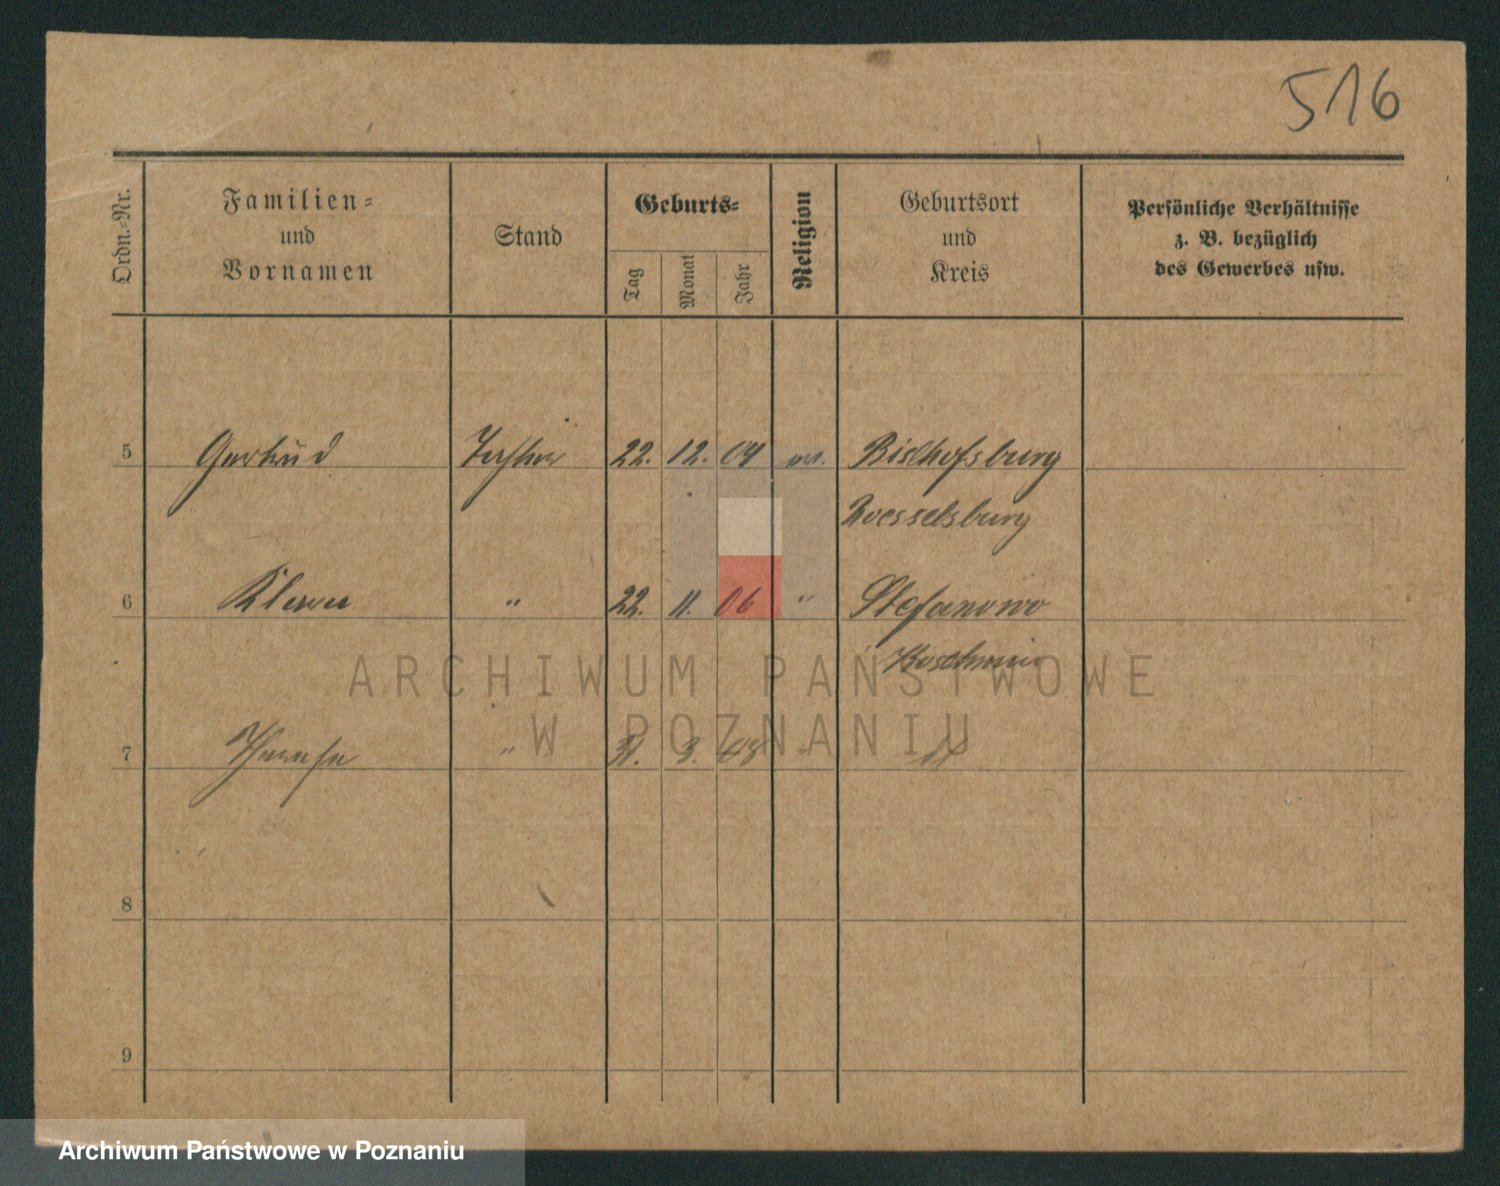 516
Ordn.-Nr.
Familien-
und
Vornamen
Stand
Geburts-
Tag
Monat
Jahr
Religion
Geburtsort
und
Kreis
Persönliche Verhältnisse
z. B. bezüglich
des Gewerbes usw.
5 Gertrud Tochter 22. 12. 04 ev. Bischofsburg
Roesselsburg
6 Klara " 22. 11. 06 " Stefanowo
Koschmin
7 " 3.
8
9
ARCHIWUM PAŃSTWOWE
W POZNANIU
Archiwum Państwowe w Poznaniu